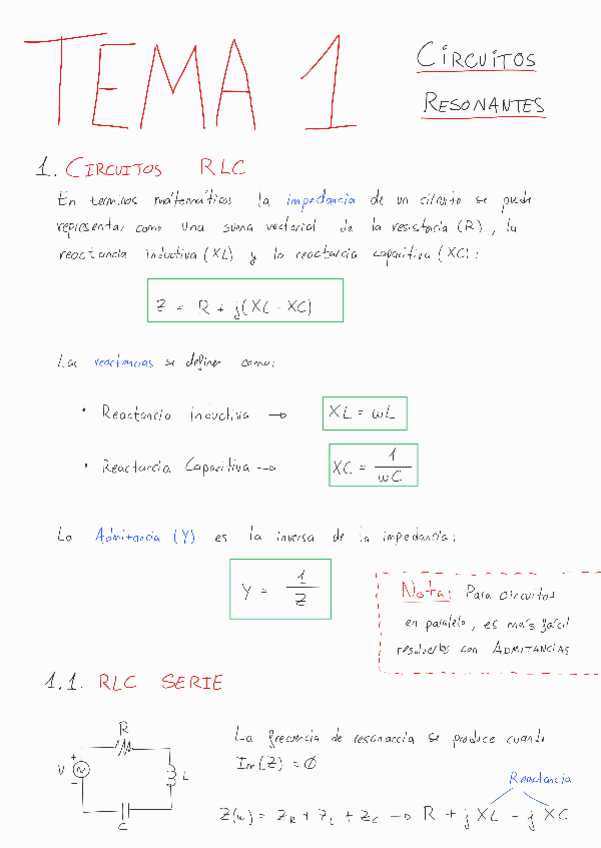 TEMA 1
CIRCUITOS
RESONANTES
1. CIRCUITOS RLC
En terminos matematicos la impedancia de un circuito se puede
representar como una suma vectorial de la resistencia (R), la
reactancia inductiva (XL) y la reactancia capacitiva (XC):
Z = R + j(XL - XC)
Las reactancias se definen como:
• Reactancia inductiva → XL = wL
• Reactancia Capacitiva → XC = 1/wC
La Admitancia (Y) es la inversa de la impedancia:
Y = 1/Z
Nota: Para circuitos
en paralelo, es más fácil
resolverlos con ADMITANCIAS
1.1. RLC SERIE
R
V
+
-
L
C
La frecuencia de resonancia se produce cuando
Im(Z) = 0
Reactancia
Z(w) = ZR + ZL + ZC → R + j XL - j XC